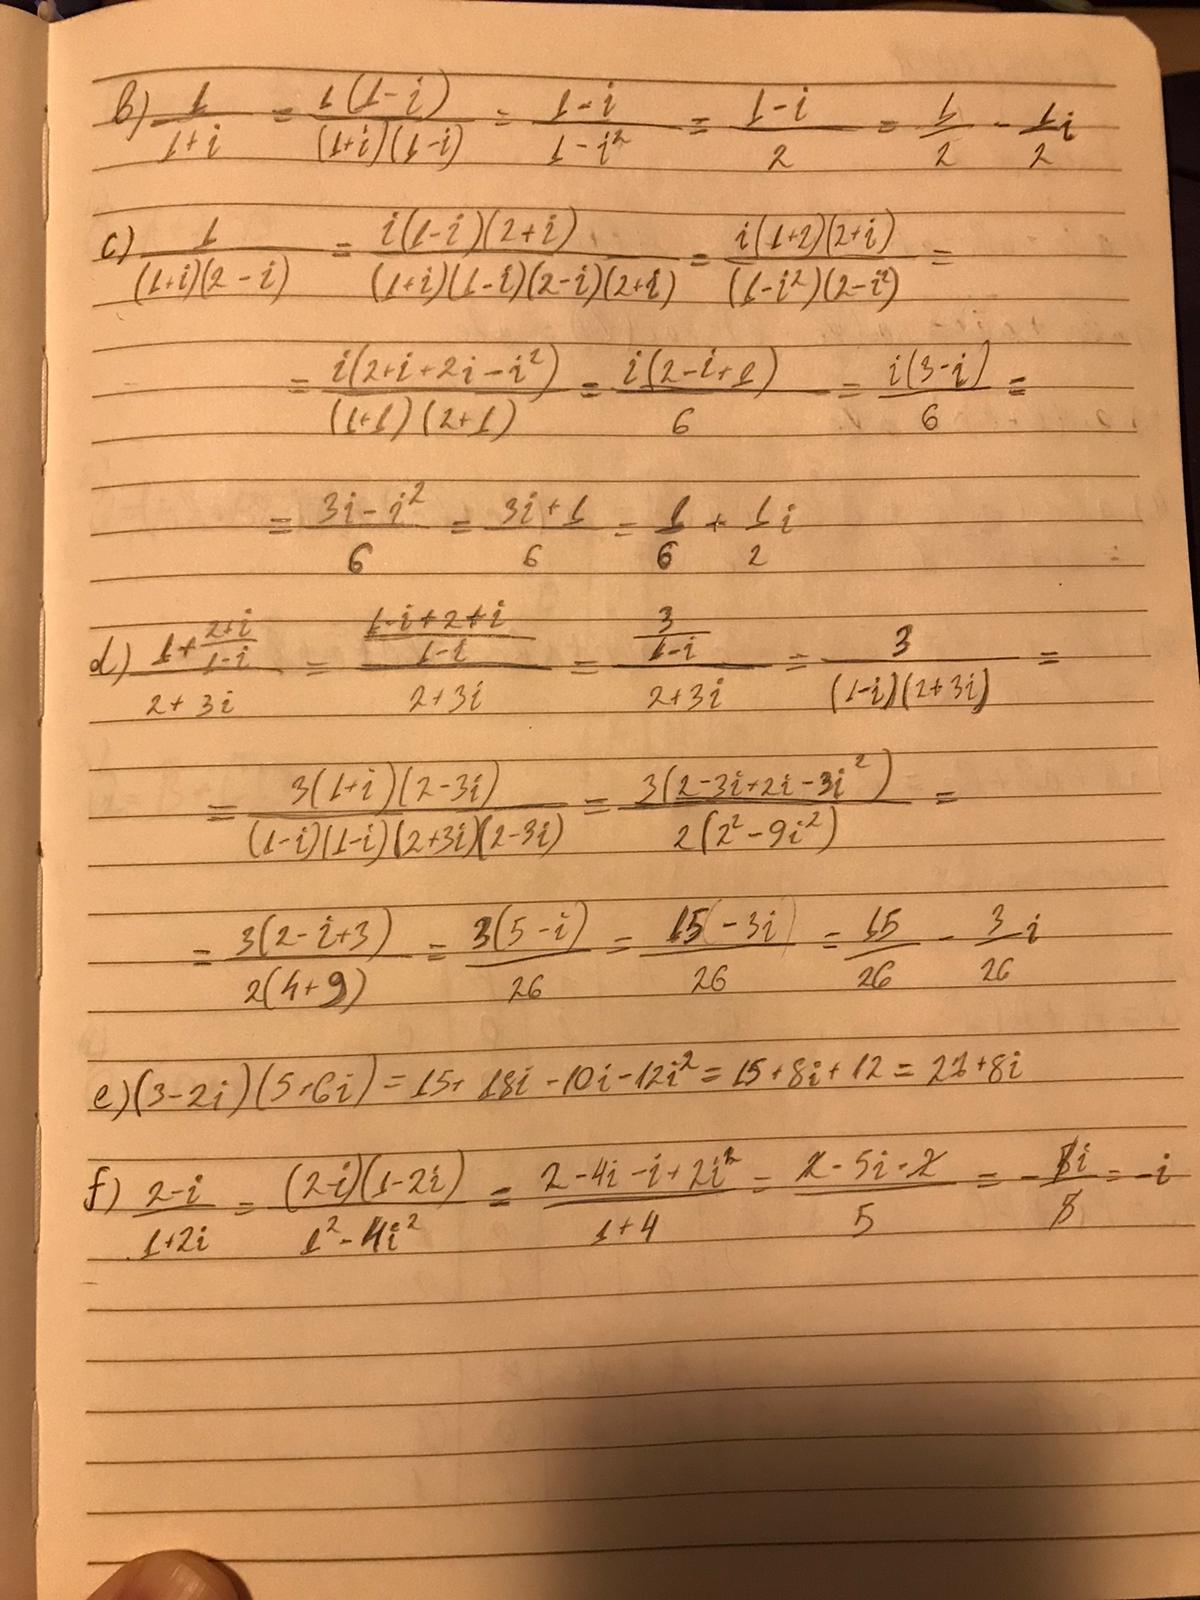 b) 1/(1+i) = 1(1-i)/((1+i)(1-i)) = (1-i)/(1-i²) = (1-i)/2 = 1/2 - 1/2 i
c) 1/((1+i)(2-i)) = i(1-i)(2+i)/((1+i)(1-i)(2-i)(2+i)) = i(1+2)(2+i)/((1-i²)(2-i²)) =
= i(2+i+2i-i²)/((1+1)(2+1)) = i(2-i+1)/6 = i(3-i)/6 =
= (3i-i²)/6 = (3i+1)/6 = 1/6 + 1/2 i
d) (1+(2+i)/(1-i))/(2+3i) = ((1-i+2+i)/(1-i))/(2+3i) = (3/(1-i))/(2+3i) = 3/((1-i)(2+3i)) =
= 3(1+i)(2-3i)/((1-i)(1-i)(2+3i)(2-3i)) = 3(2-3i+2i-3i²)/(2(2²-9i²)) =
= 3(2-i+3)/(2(4+9)) = 3(5-i)/26 = (15-3i)/26 = 15/26 - 3/26 i
e) (3-2i)(5+6i) = 15+18i-10i-12i² = 15+8i+12 = 27+8i
f) (2-i)/(1+2i) = (2-i)(1-2i)/(1²-4i²) = (2-4i-i+2i²)/(1+4) = (2-5i-2)/5 = -5i/5 = -i